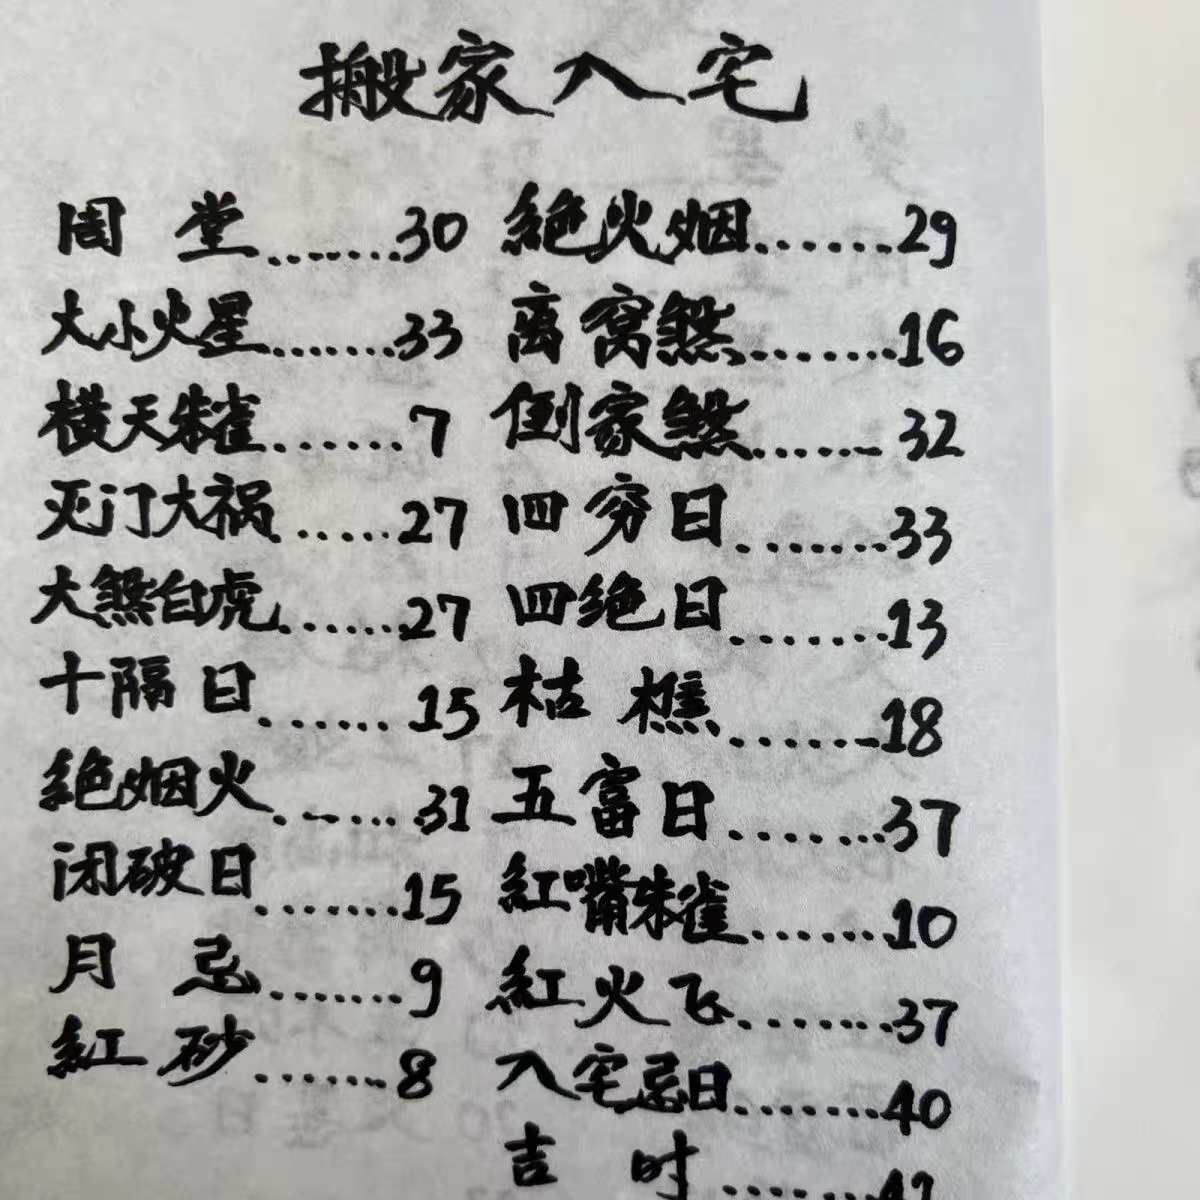 搬家入宅
周堂.......30
大小火星.......33
横天朱雀.......7
灭门大祸......27
大煞白虎......27
十隔日.......15
絶烟火.......31
闭破日.......15
月忌.......9
紅砂.......8
絶火烟......29
离窝煞.......16
倒家煞......32
四穷日.......33
四绝日.......13
枯樵.......18
五富日.......37
紅嘴朱雀......10
紅火飞.......37
入宅忌日.......40
吉时......